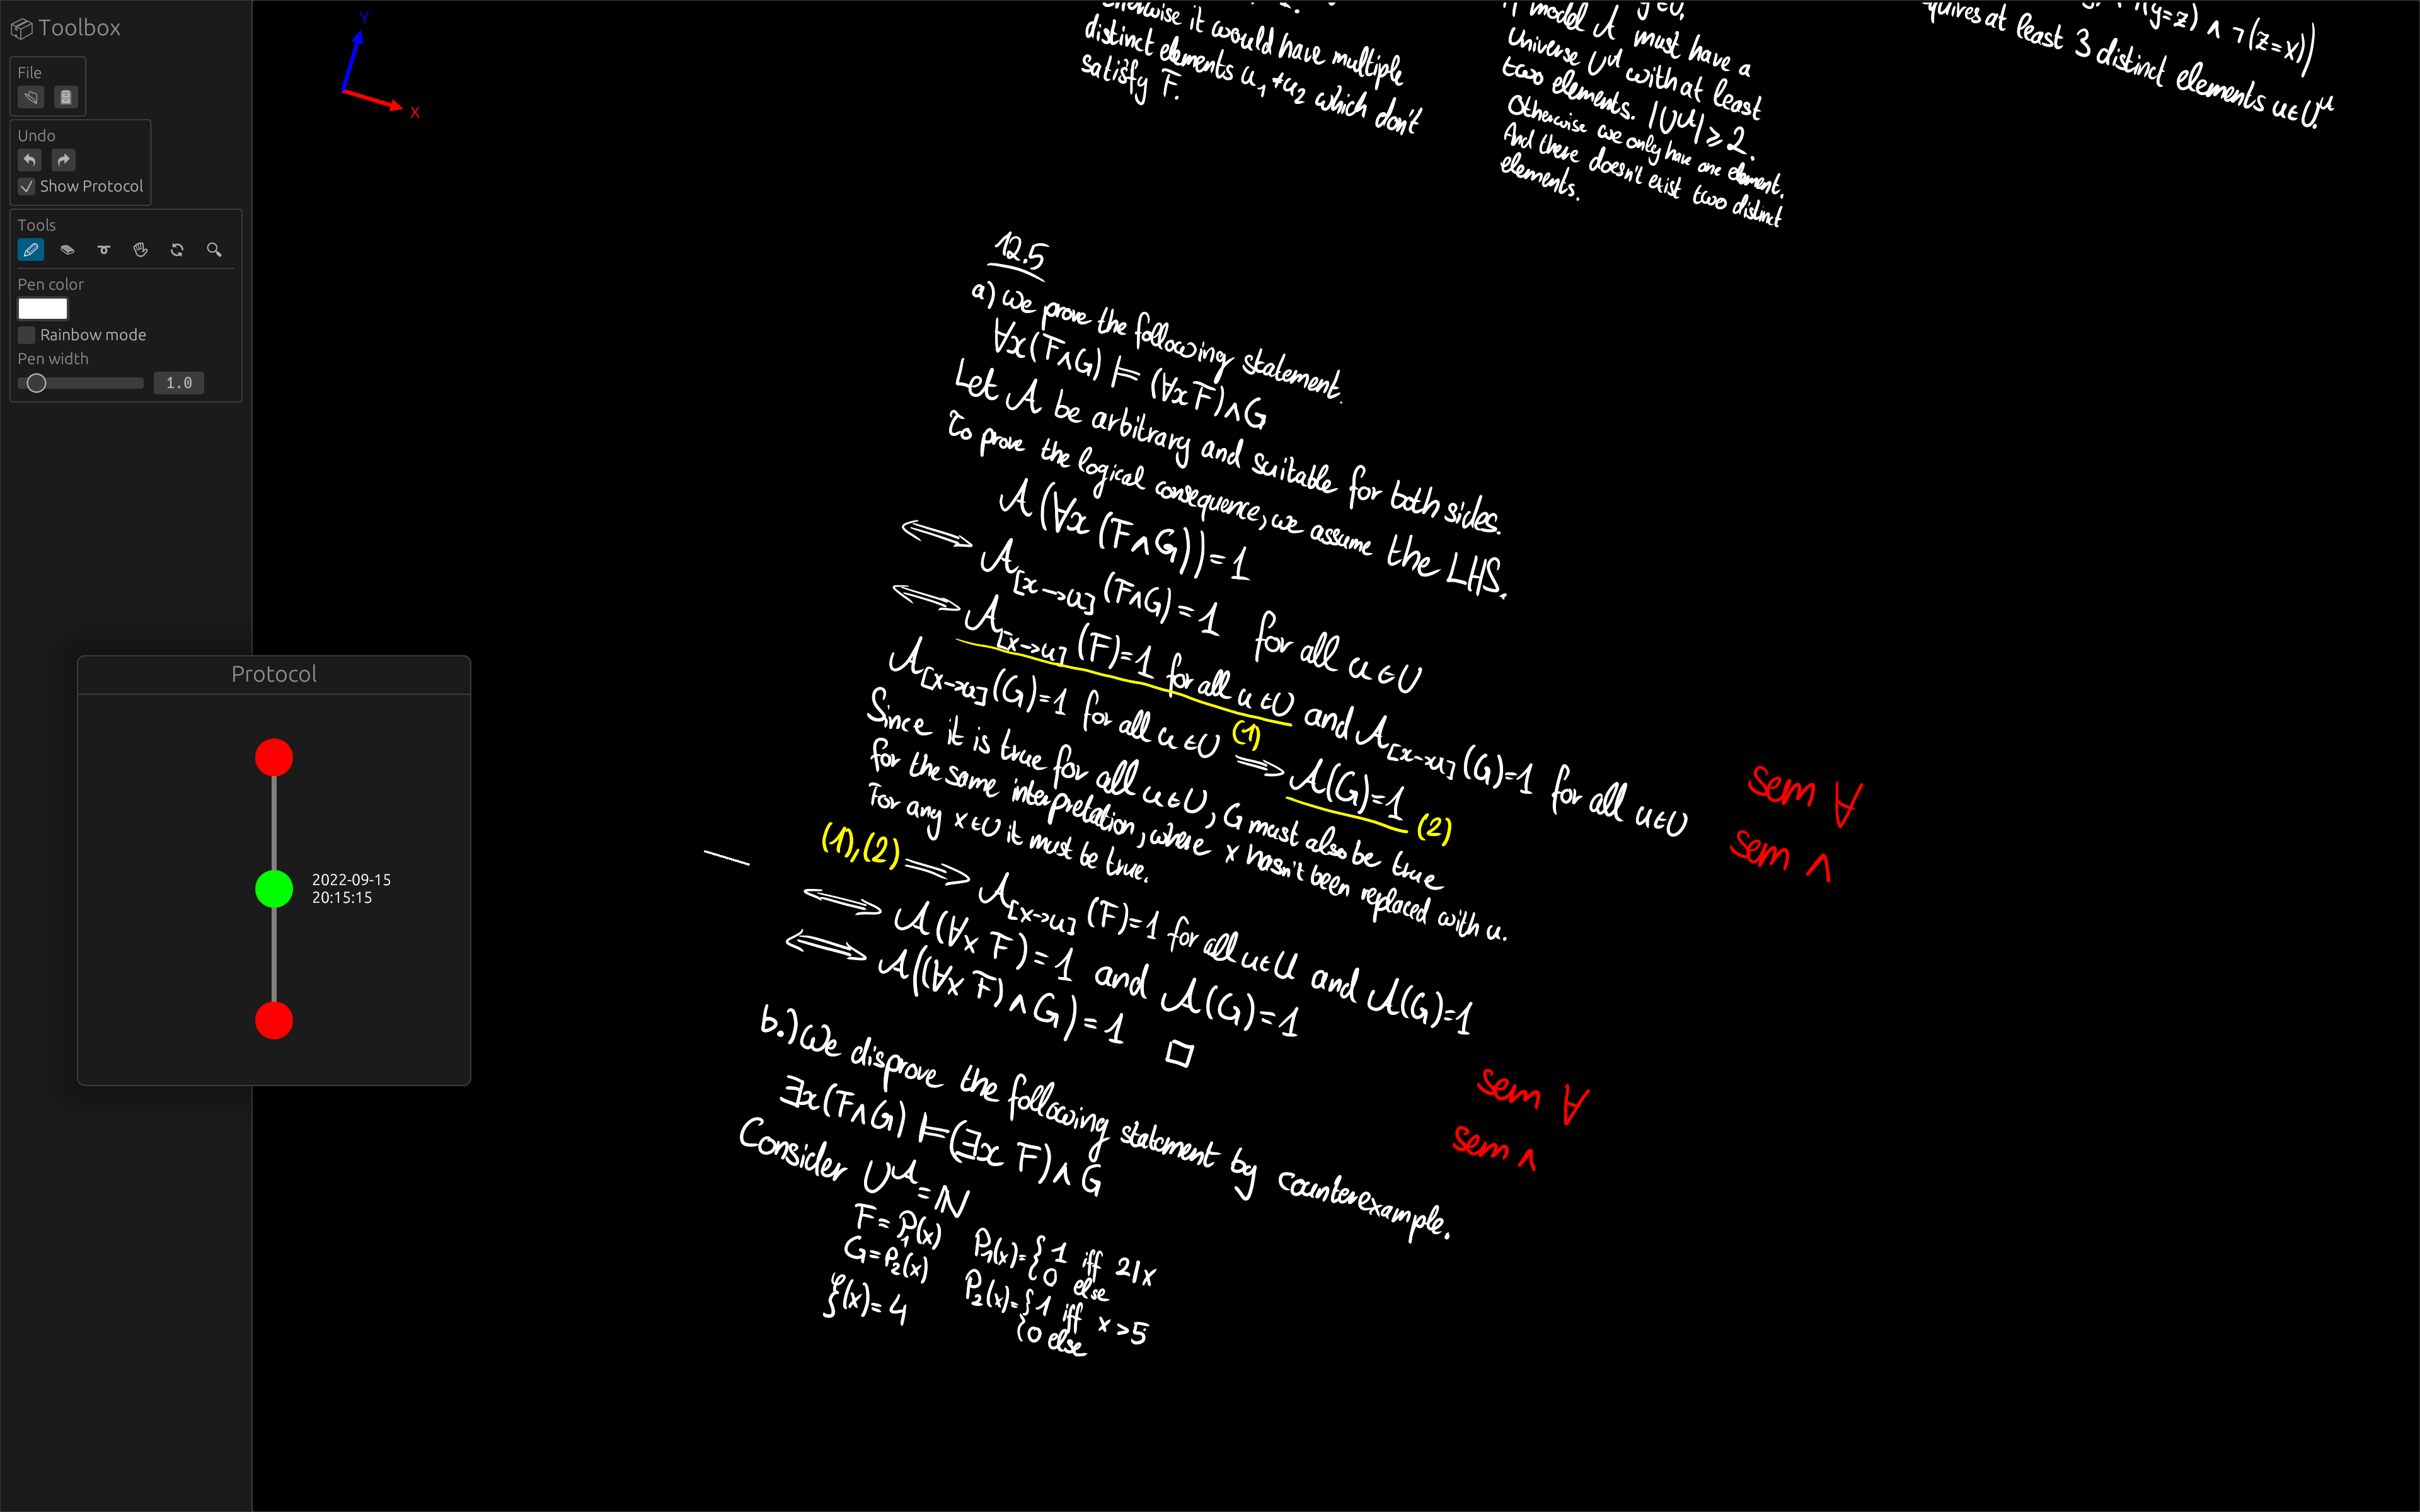 Toolbox
File
Undo
Show Protocol
Tools
Pen color
Rainbow mode
Pen width
1.0
Protocol
2022-09-15
20:15:15
Y
X
it would have multiple
distinct elements u₁ ≠ u₂ which don't
satisfy F.
model 𝒜 must have a
Universe U^𝒜 with at least
two elements. |U^𝒜| ⩾ 2.
Otherwise we only have one element.
And there doesn't exist two distinct
elements.
(y=z) ∧ ¬(z=x))
quires at least 3 distinct elements u∈U^𝒜.
12.5
a) we prove the following statement.
∀x(F∧G) ⊨ (∀x F)∧G
Let 𝒜 be arbitrary and suitable for both sides.
To prove the logical consequence, we assume the LHS.
𝒜(∀x (F∧G))=1
⟺ 𝒜[x→u] (F∧G)=1 for all u∈U
sem ∀
⟺ 𝒜[x→u] (F)=1 for all u∈U and 𝒜[x→u] (G)=1 for all u∈U
sem ∧
(1)
𝒜[x→u](G)=1 for all u∈U ⟹ 𝒜(G)=1 (2)
Since it is true for all u∈U, G must also be true
for the same interpretation, where x hasn't been replaced with u.
For any x∈U it must be true.
(1),(2) ⟹ 𝒜[x→u] (F)=1 for all u∈U and 𝒜(G)=1
⟺ 𝒜(∀x F)=1 and 𝒜(G)=1
sem ∀
⟺ 𝒜((∀x F)∧G)=1 □
sem ∧
b.) We disprove the following statement by counterexample.
∃x(F∧G) ⊨ (∃x F)∧G
Consider U^𝒜=ℕ
F=P₁(x) P₁(x)={1 iff 2|x
0 else
G=P₂(x) P₂(x)={1 iff x>5
{0 else
ξ(x)=4